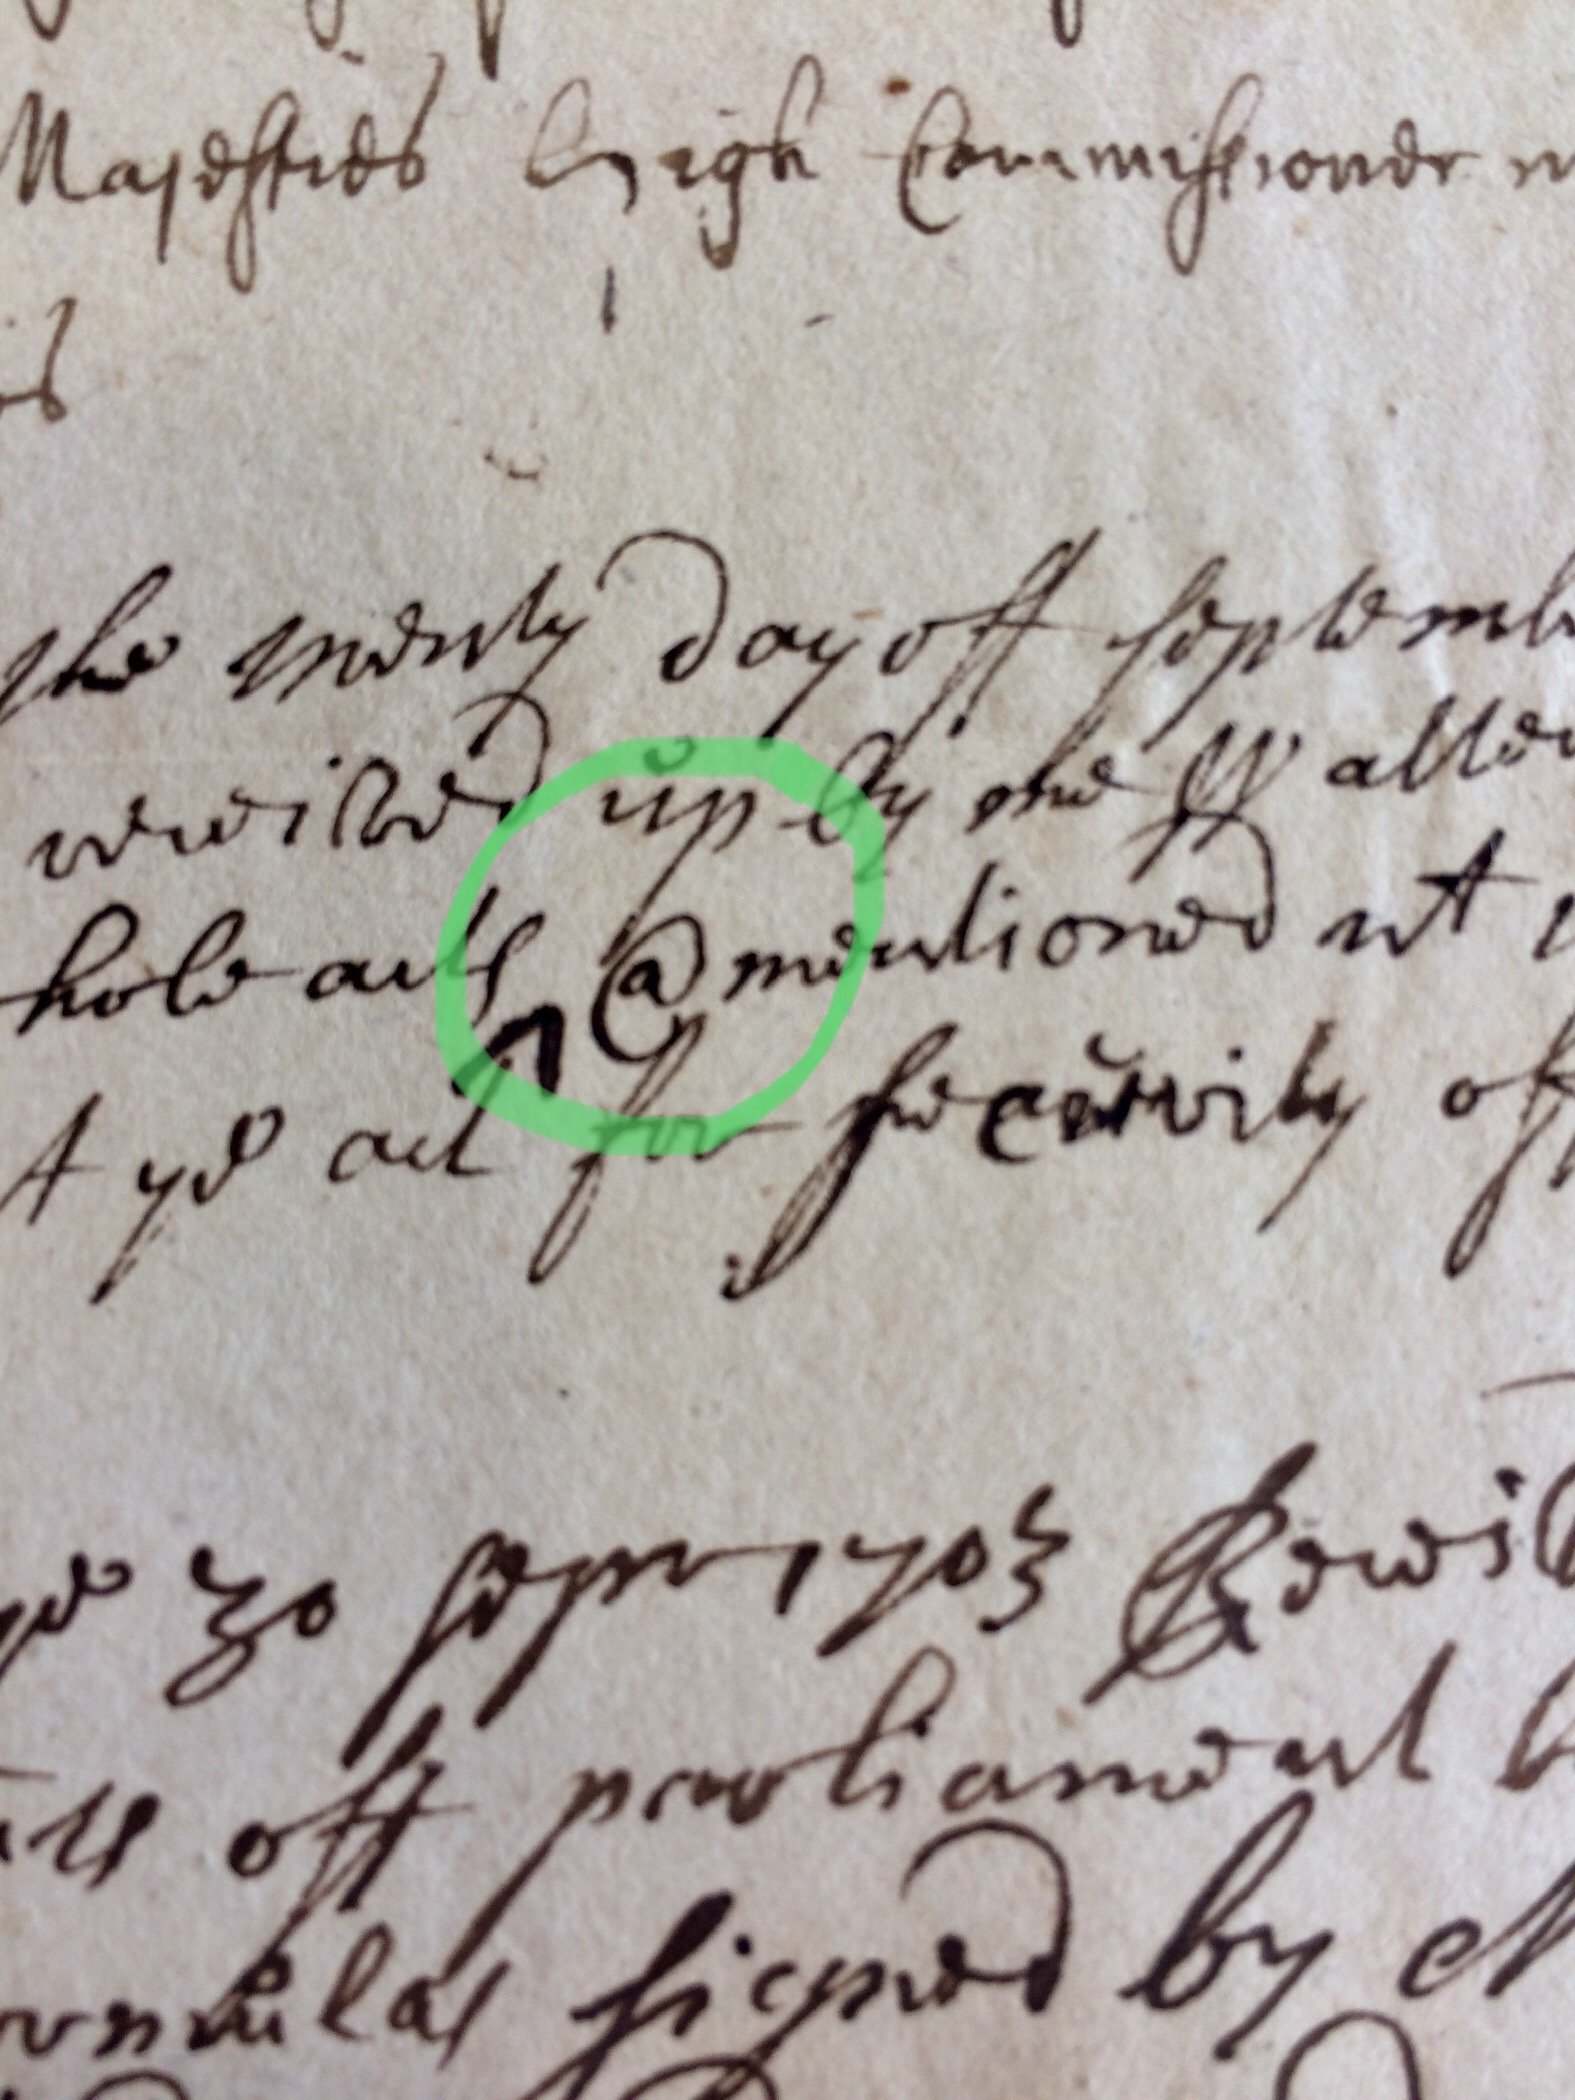 Majesties high Commissioner
the twenty day off septemb
receibed up by me Walter
hole acts @mentioned wt
t ye act for secŭrity off
ye 30 sepr 1703 Receib
acts off parliament b
signed by